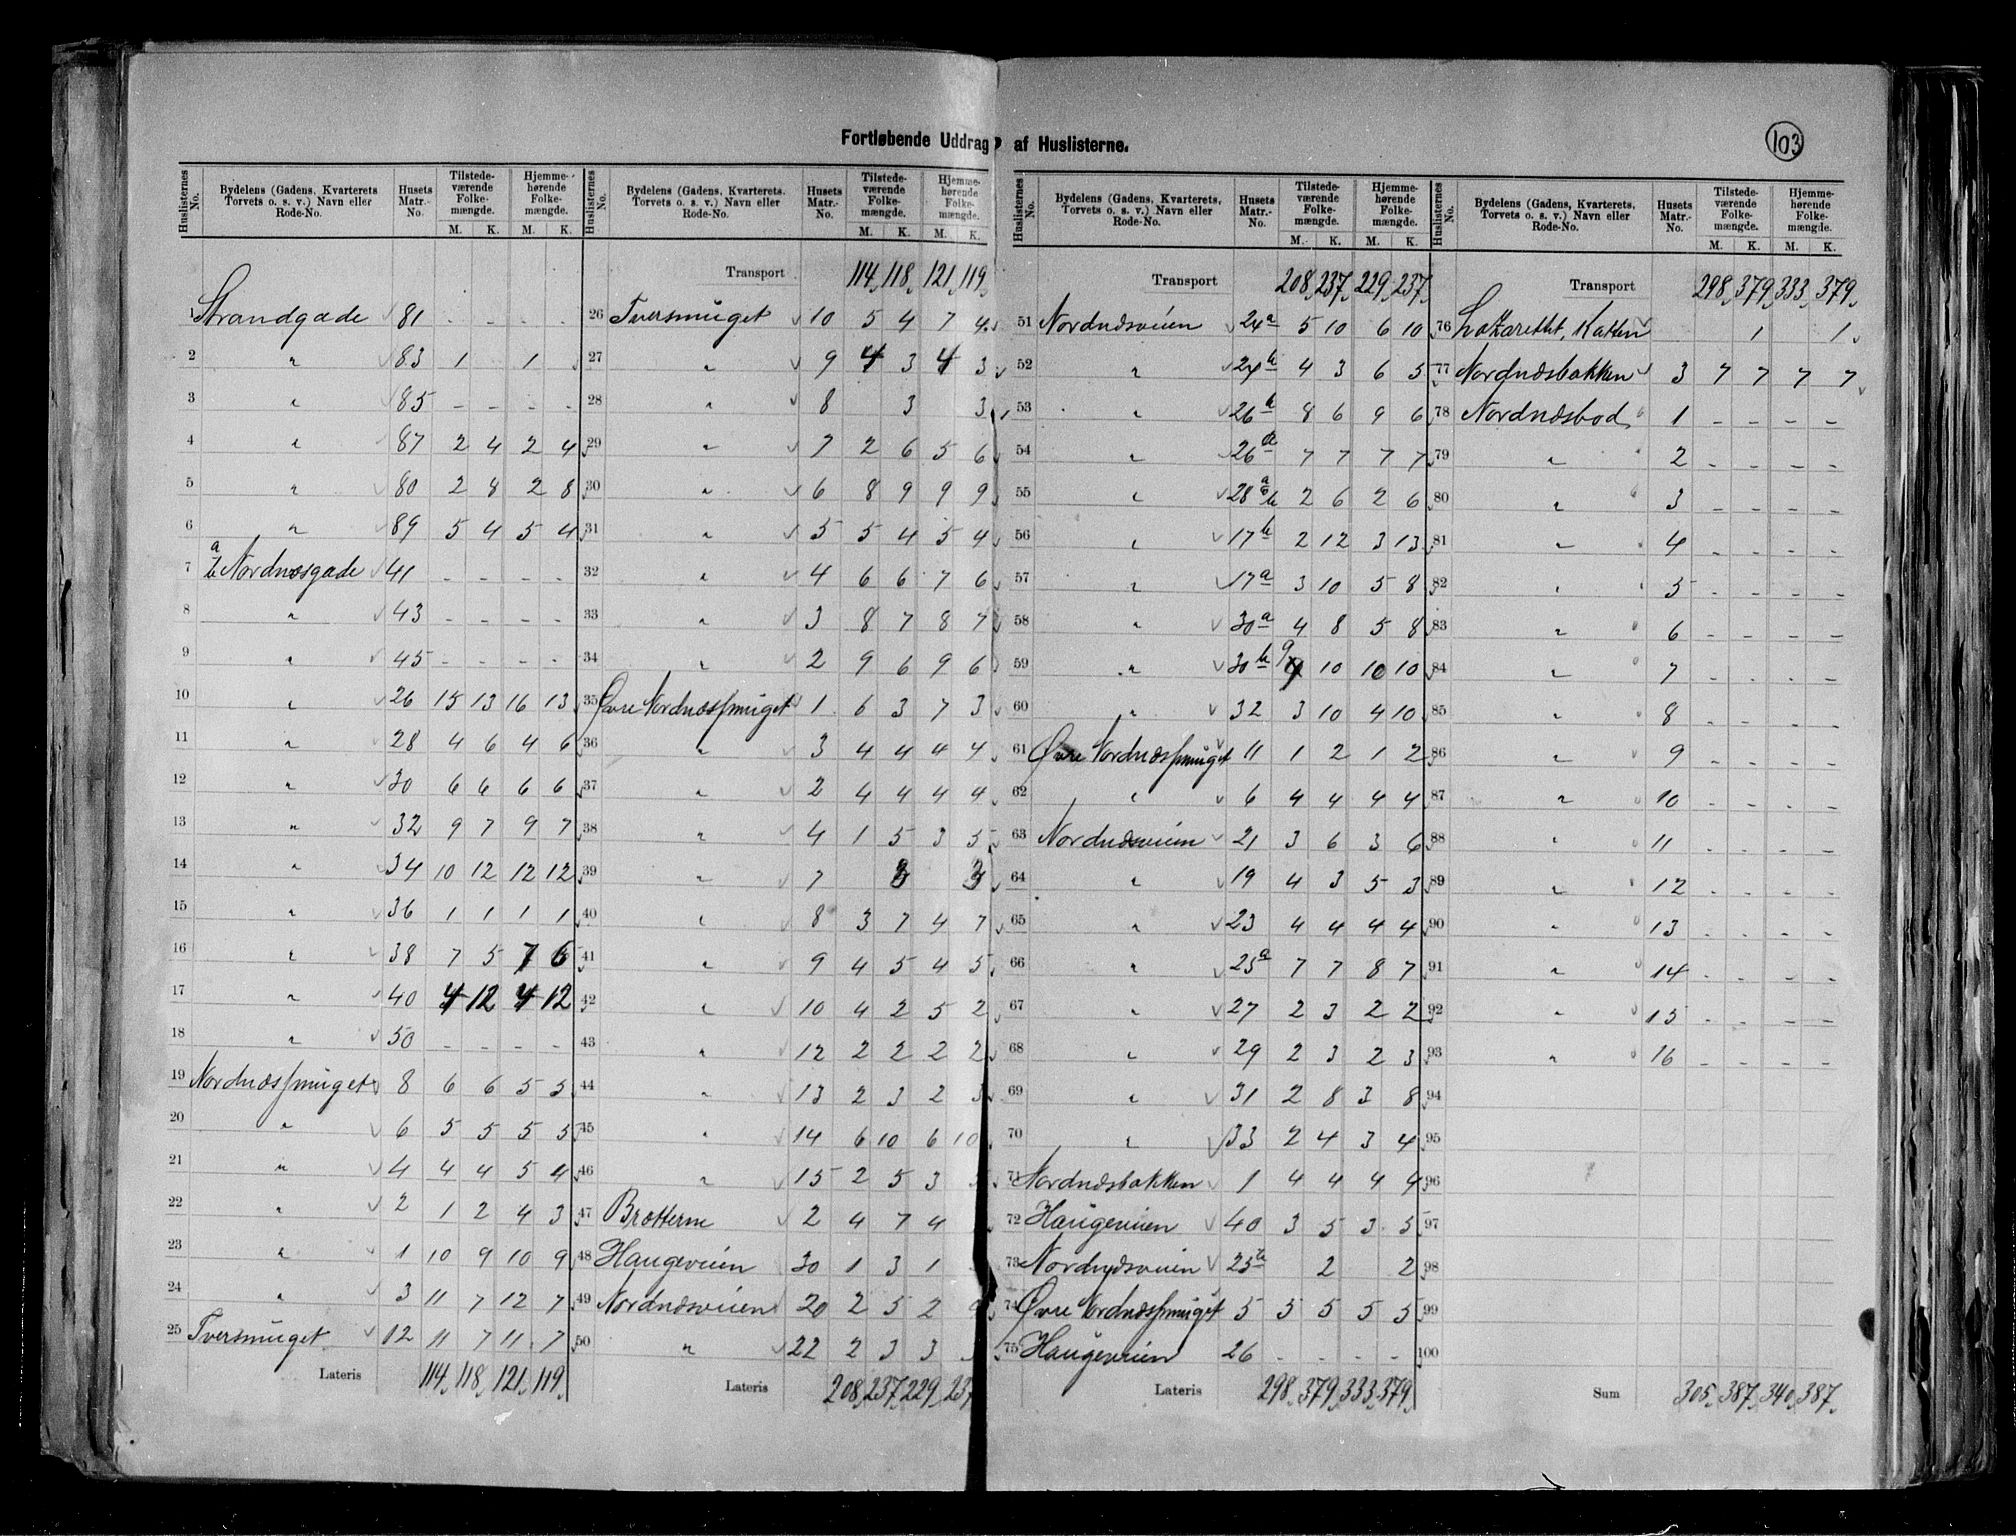 Fortløbende Uddrag af Huslisterne.
103
Huslisternes No. Bydelens (Gadens, Kvarterets Torvets o. s. v.) Navn eller Rode-No. Husets Matr.-No. Tilstede-værende Folke-mængde. M. K. Hjemme-hørende Folke-mængde. M. K.
1 Strandgade 81 - - - -
2 " 83 1 1
3 " 85 - - - -
4 " 87 2 4 2 4
5 " 80 2 8 2 8
6 " 89 5 4 5 4
7 a b Nordnæsgade 41 - - - -
8 " 43 - - - -
9 " 45 - - - -
10 " 26 15 13 16 13
11 " 28 4 6 4 6
12 " 30 6 6 6 6
13 " 32 9 7 9 7
14 " 34 10 12 12 12
15 " 36 1 1 1 1
16 " 38 7 5 7 6
17 " 40 4 12 4 12
18 " 50 - - - -
19 Nordnæssmuget 8 6 6 5 5
20 " 6 5 5 5 5
21 " 4 4 4 5 4
22 " 2 1 2 4 3
23 " 1 10 9 10 9
24 " 3 11 7 12 7
25 Tversmuget 12 11 7 11 7
Lateris 114 118 121 119
Huslisternes No. Bydelens (Gadens, Kvarterets. Torvets o. s. v.) Navn eller Rode-No. Husets Matr.-No. Tilstede-værende Folke-mængde. M. K. Hjemme-hørende Folke-mængde. M. K.
Transport 114 118 121 119
26 Tversmuget 10 5 4 7 4
27 " 9 4 3 4 3
28 " 8 3 3
29 " 7 2 6 5 6
30 " 6 8 9 9 9
31 " 5 5 4 5 4
32 " 4 6 6 7 6
33 " 3 8 7 8 7
34 " 2 9 6 9 6
35 Øvre Nordnæssmuget 1 6 3 7 3
36 " 3 4 4 4 4
37 " 2 4 4 4 4
38 " 4 1 5 3 5
39 " 7 3 3
40 " 8 3 7 4 7
41 " 9 4 5 4 5
42 " 10 4 2 5 2
43 " 12 2 2 2 2
44 " 13 2 3 2 3
45 " 14 6 10 6 10
46 " 15 2 5 3
47 Brætterne 2 4 7 4
48 Haugeveien 30 1 3 1
49 Nordnæsveien 20 2 5 2
50 " 22 2 3 3
Lateris 208 237 229 237
Huslisternes No. Bydelens (Gadens, Kvarterets, Torvets o. s. v.) Navn eller Rode-No. Husets Matr.-No. Tilstede-værende Folke-mængde. M. K. Hjemme-hørende Folke-mængde. M. K.
Transport 208 237 229 237
51 Nordnæsveien 24a 5 10 6 10
52 " 24b 4 3 6 5
53 " 26b 8 6 9 6
54 " 26a 7 7 7 7
55 " 28 a b 2 6 2 6
56 " 17b 2 12 3 13
57 " 17a 3 10 5 8
58 " 30a 4 8 5 8
59 " 30b 9 10 10 10
60 " 32 3 10 4 10
61 Øvre Nordnæssmuget 11 1 2 1 2
62 " 6 4 4 4 4
63 Nordnæsveien 21 3 6 3 6
64 " 19 4 3 5 3
65 " 23 4 4 4 4
66 " 25a 7 7 8 7
67 " 27 2 3 2 2
68 " 29 2 3 2 3
69 " 31 2 8 3 8
70 " 33 2 4 3 4
71 Nordnæsbakken 1 4 4 4 4
72 Haugeveien 40 3 5 3 5
73 Nordnæsveien 25b 2 2
74 Øvre Nordnæssmuget 5 5 5 5 5
75 Haugeveien 26 - - - -
Lateris 298 379 333 379
Huslisternes No. Bydelens (Gadens, Kvarterets, Torvets o. s. v.) Navn eller Rode-No. Husets Matr.-No. Tilstede-værende Folke-mængde. M. K. Hjemme-hørende Folke-mængde. M. K.
Transport 298 379 333 379
76 Lazarethet, Katten 1 1
77 Nordnæsbakken 3 7 7 7 7
78 Nordnæsbod 1 - - - -
79 " 2 - - - -
80 " 3 - - - -
81 " 4 - - - -
82 " 5 - - - -
83 " 6 - - - -
84 " 7 - - - -
85 " 8 - - - -
86 " 9 - - - -
87 " 10 - - - -
88 " 11 - - - -
89 " 12 - - - -
90 " 13 - - - -
91 " 14 - - - -
92 " 15 - - - -
93 " 16 - - - -
94
95
96
97
98
99
100
Sum 305 387 340 387